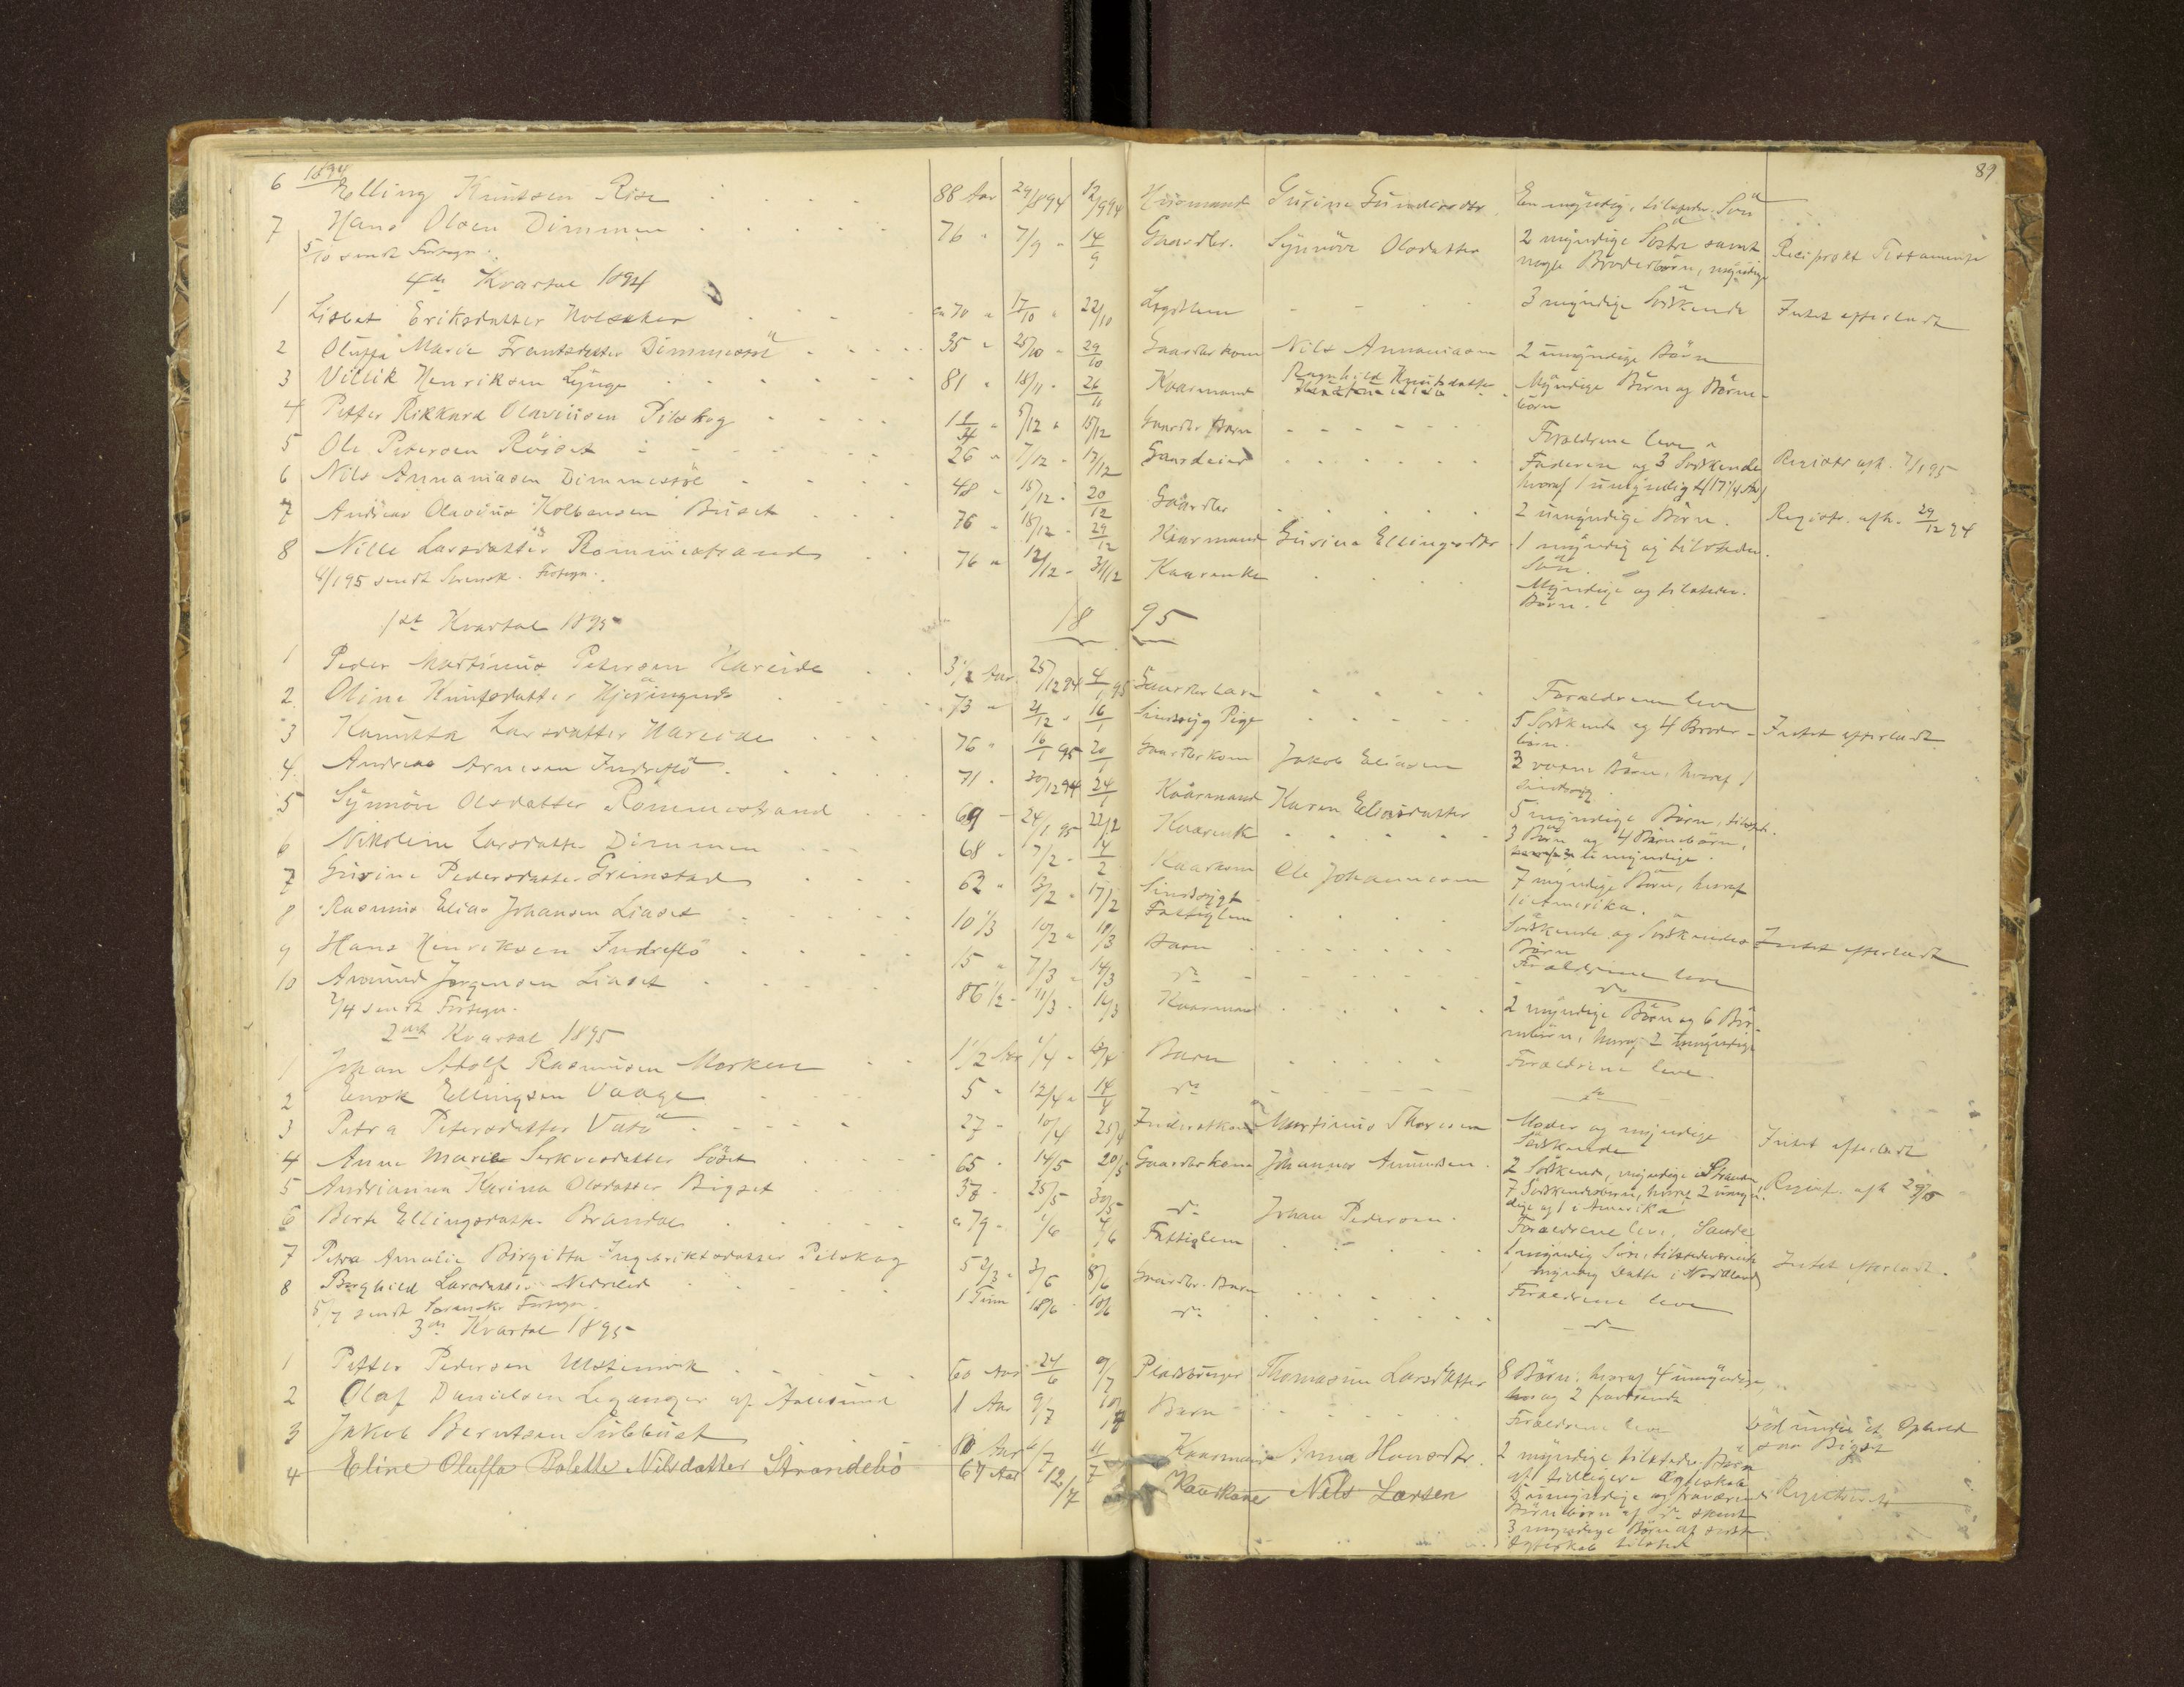 89
1894
6 Elling Knutsen Rise 88 Aar 29/8 94 12/9 94 Husmand Gurine Gundersdtr. En myndig, tilstedev. Sön
7 Hans Olsen Dimmen 76 " 7/9 " 14/9 Gaardbr. Synnöve Olsdatter 2 myndige Söstre samt
nogle Broderbörn, myndige Reciprokt Testamente
5/10 sendt Fortegn.
4de Kvartal 1894
1 Lisbet Eriksdatter Holsaker ca 70 " 17/10 " 22/10 Lægdslem 3 myndige Södskende Intet efterladt
2 Oluffa Marie Frantsdatter Dimmesöl 35 " 25/10 " 29/10 Gaardbr.kone Nils Annaniasen 2 umyndige Börn
3 Villik Henriksen Lynge 81 " 18/11 " 26/11 Kaarmand Ragnhild Knutsdatter Myndige Börn og Börne-
börn
4 Petter Rikkard Olavsen Pilskog 1 1/4 " 5/12 " 15/12 Gaardbr. Barn Forældrene leve
5 Ole Petersen Röiset 26 " 7/12 " 13/12 Gaardeier Faderen og 3 Södskende Registr. afh. 7/1 95
hvoraf 1 umyndig (17 1/4 Aar)
6 Nils Annaniasen Dimmesöl 48 " 15/12 " 20/12 Gaardbr 2 umyndige Börn. Registr. afh. 29/12 94
7 Andreas Olavius Kolbensen Buset 76 " 18/12 " 29/12 Kaarmand Gurine Ellingsdtr 1 myndig og tilstedev.
Sön.
8 Nille Larsdatter Rommestrand 76 " 12/12 " 31/12 Kaarenke Myndige og tilstedev.
Börn.
8/1 95 sendt Sorensk. Fortegn.
1ste Kvartal 1895 1895
1 Peder Martinus Petersen Hareide 3 1/2 Aar 25/12 94 4/1 95 Gaardbr barn Forældrene leve
2 Oline Knutsdatter Hjöringnes 73 " 21/12 " 16/1 Sindssyg Pige 5 Södskende og 4 Broder- Intet efterladt
börn.
3 Hansista Larsdatter Hareide 76 " 16/1 95 20/1 Gaardbr kone Jakob Eliasen 3 voxne Börn, hvoraf 1
sindssyg.
4 Andreas Arnesen Indreflö 71 " 30/12 94 24/1 Kaarmand Karen Eliasdatter 5 myndige Börn, tilstede.
5 Synnöve Olsdatter Rommestrand 69 " 24/1 95 22/2 Kaarenk 3 Börn og 4 Börnebörn,
umyndige.
6 Nikoline Larsdatter Dimmen 68 " 7/2 " 14/2 Kaarkone Ole Johannesen 7 myndige Börn, hvoraf
1 i Amerika.
7 Gurine Pedersdatter Grimstad 62 " 8/2 " 17/2 Sindssygt
Fattiglem Södskende og Södskendes Intet efterladt
Börn
8 Rasmus Elias Johansen Liaset 10 1/3 10/2 " 10/3 Barn Forældrene leve
9 Hans Henriksen Indreflö 15 " 7/3 " 14/3 do do
10 Amund Jørgensen Liaset 86 1/2 " 11/3 " 16/3 Kaarmand 2 myndige Börn og 6 Bör-
nebörn, hvoraf 2 umyndige
2/4 sendt Fortegn.
2det Kvartal 1895
1 Johan Adolf Rasmusen Morken 1 1/2 Aar 1/4 " Barn Forældrene leve.
2 Enok Ellingsen Vaage 5 " 12/4 " 14/4 do do
3 Petra Petersdatter Vatö 27 " 10/4 25/4 Inderstkone Martinus Thoresen Moder og myndige Intet efterladt
Södskende
4 Anne Marie Serkvesdatter Söset 65 " 14/5 20/5 Gaardbr kone Johannes Amundsen. 2 Södskende, myndige
7 Södskendebörn, hvoraf 2 umyn-
dige og 1 i Amerika Registr. afh.
5 Andrianna Karina Olsdatter Bigset 37 " 25/5 30/5 do Johan Pedersen. Forældrene leve.
6 Berte Ellingsdatter Brandal 79 " 1/6 7/6 Fattiglem 1 myndig Sön, tilstedeværende Intet efterladt.
1 myndig Datter i Nordland
7 Petra Amalie Birgitta Ingebriktsdatter Pilskog 5 2/3 " 3/6 8/6 Gaardbr. Barn Forældrene leve
8 Borghild Larsdatter Nedrelid 1 Time 18/6 18/6 do do
5/7 sendt Sorenskr. Fortegn.
3die Kvartal 1895
1 Petter Pedersen Ulsteinvik 60 Aar 24/6 9/7 Pladsbruger Thomasine Larsdatter 8 Börn, hvoraf 4 umyndige
og 2 fraværende
2 Olaf Danielsen Leganger af Aalesund 1 Aar 9/7 Barn Forældrene leve Död under et Ophold
paa Bigset
3 Jakob Berntsen Sulebust 80 Aar 6/7 11/7 Kaarmand Anna Hansdtr. 2 myndige tilstedev. Börn
af tidligere Ægteskab
5 umyndige og fraværende
Börnebörn af do samt
3 myndige Börn af sidste
Ægteskab tilstede
4 Eline Oluffa Bolette Nilsdatter Strandebö 67 Aar 12/7 Kaarkone Nils Larsen Registreret